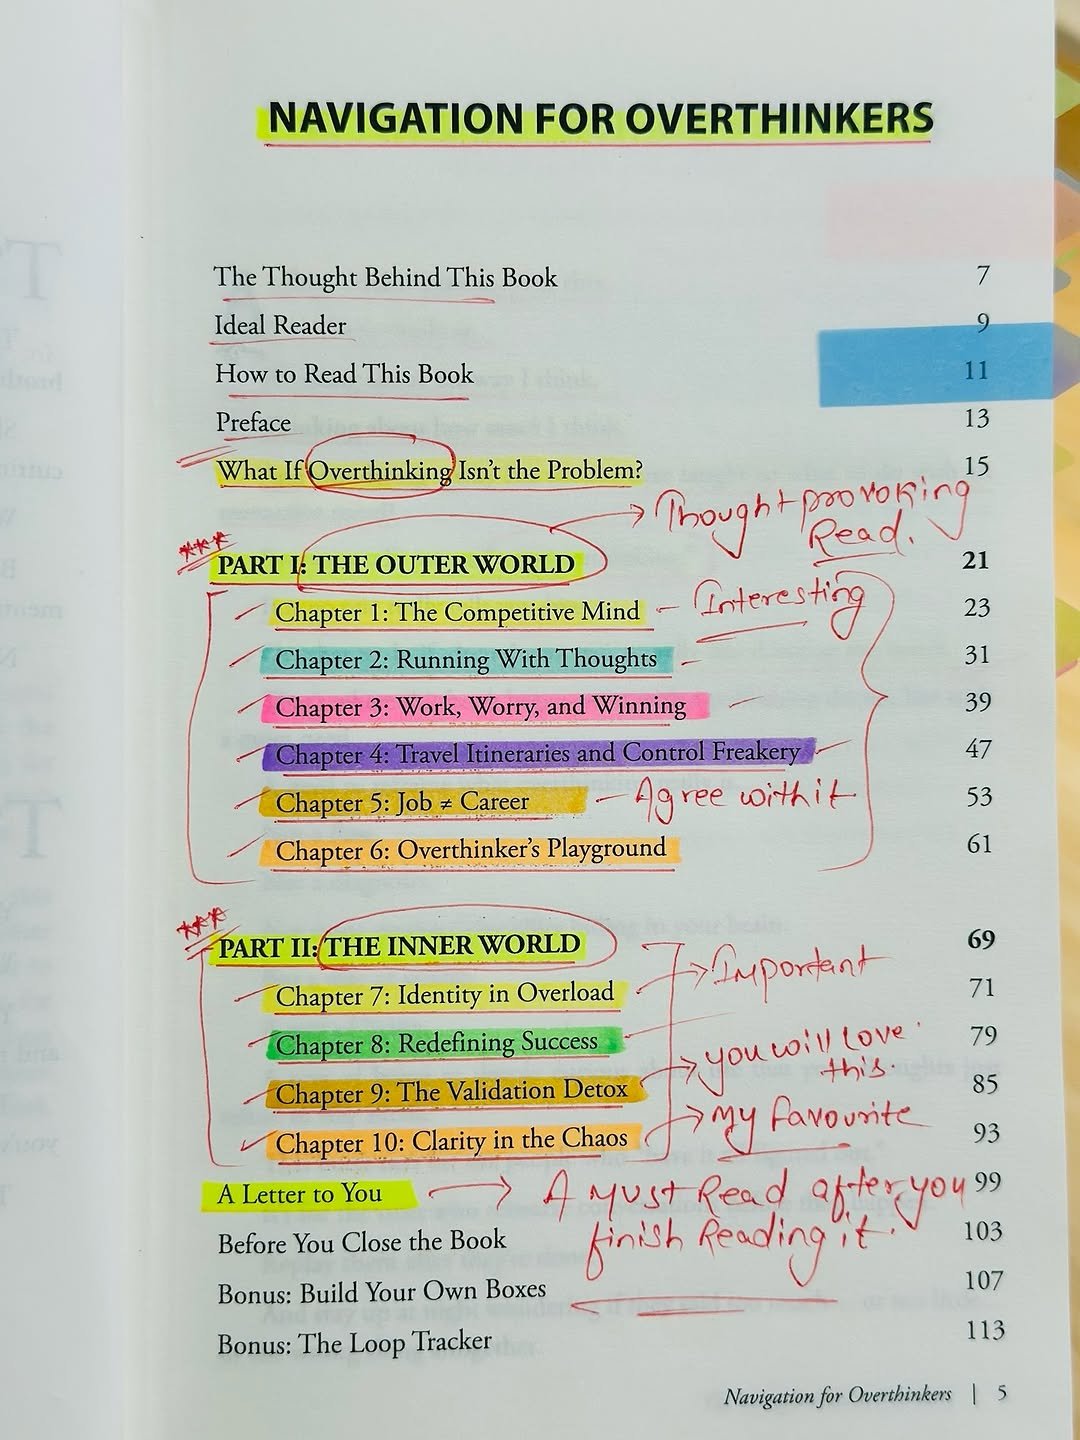 NAVIGATION FOR OVERTHINKERS
The Thought Behind This Book 7
Ideal Reader 9
How to Read This Book 11
Preface 13
What If Overthinking Isn't the Problem? 15
Thought provoking
Read.
PART I: THE OUTER WORLD 21
Chapter 1: The Competitive Mind - Interesting 23
Chapter 2: Running With Thoughts 31
Chapter 3: Work, Worry, and Winning 39
Chapter 4: Travel Itineraries and Control Freakery 47
Chapter 5: Job ≠ Career - Agree with it 53
Chapter 6: Overthinker's Playground 61
PART II: THE INNER WORLD 69
Important
Chapter 7: Identity in Overload 71
Chapter 8: Redefining Success 79
you will love
this.
Chapter 9: The Validation Detox 85
Chapter 10: Clarity in the Chaos My favourite 93
A Letter to You A Must Read after you 99
finish Reading it.
Before You Close the Book 103
Bonus: Build Your Own Boxes 107
Bonus: The Loop Tracker 113
Navigation for Overthinkers | 5